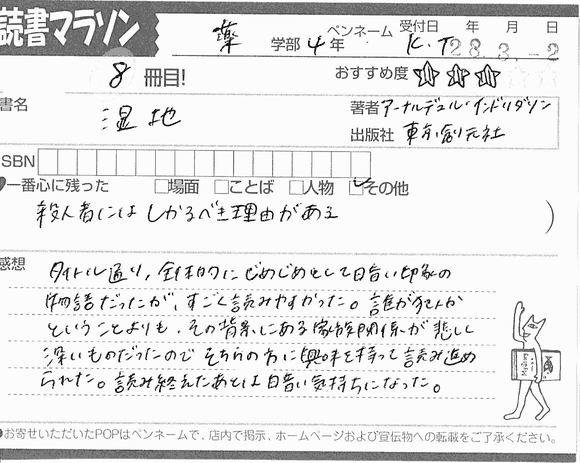 読書マラソン
薬 学部 4年 ペンネーム K.T 受付日 年 月 日
28 3.-2
8 冊目! おすすめ度 ☆☆☆
書名 湿地
著者 アーナルデュル・インドリダソン
出版社 東京創元社
ISBN
一番心に残った □場面 □ことば □人物 ☑その他
殺人者にはしかるべき理由がある )
感想
タイトル通り、全体的にじめじめとして暗い印象の
物語だったが、すごく読みやすかった。誰が犯人か
ということよりも、その背景にある家族関係が悲しく
深いものだったのでそちらの方に興味を持って読み進め
られた。読み終えたあとは暗い気持ちになった。
●お寄せいただいたPOPはペンネームで、店内で掲示、ホームページおよび宣伝物への転載をご了承ください。